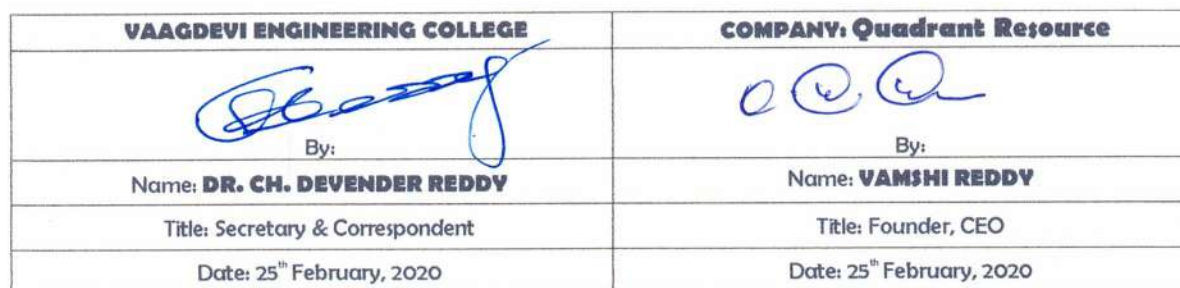 VAAGDEVI ENGINEERING COLLEGE
COMPANY: Quadrant Resource
By:
By:
Name: DR. CH. DEVENDER REDDY
Name: VAMSHI REDDY
Title: Secretary & Correspondent
Title: Founder, CEO
Date: 25th February, 2020
Date: 25th February, 2020